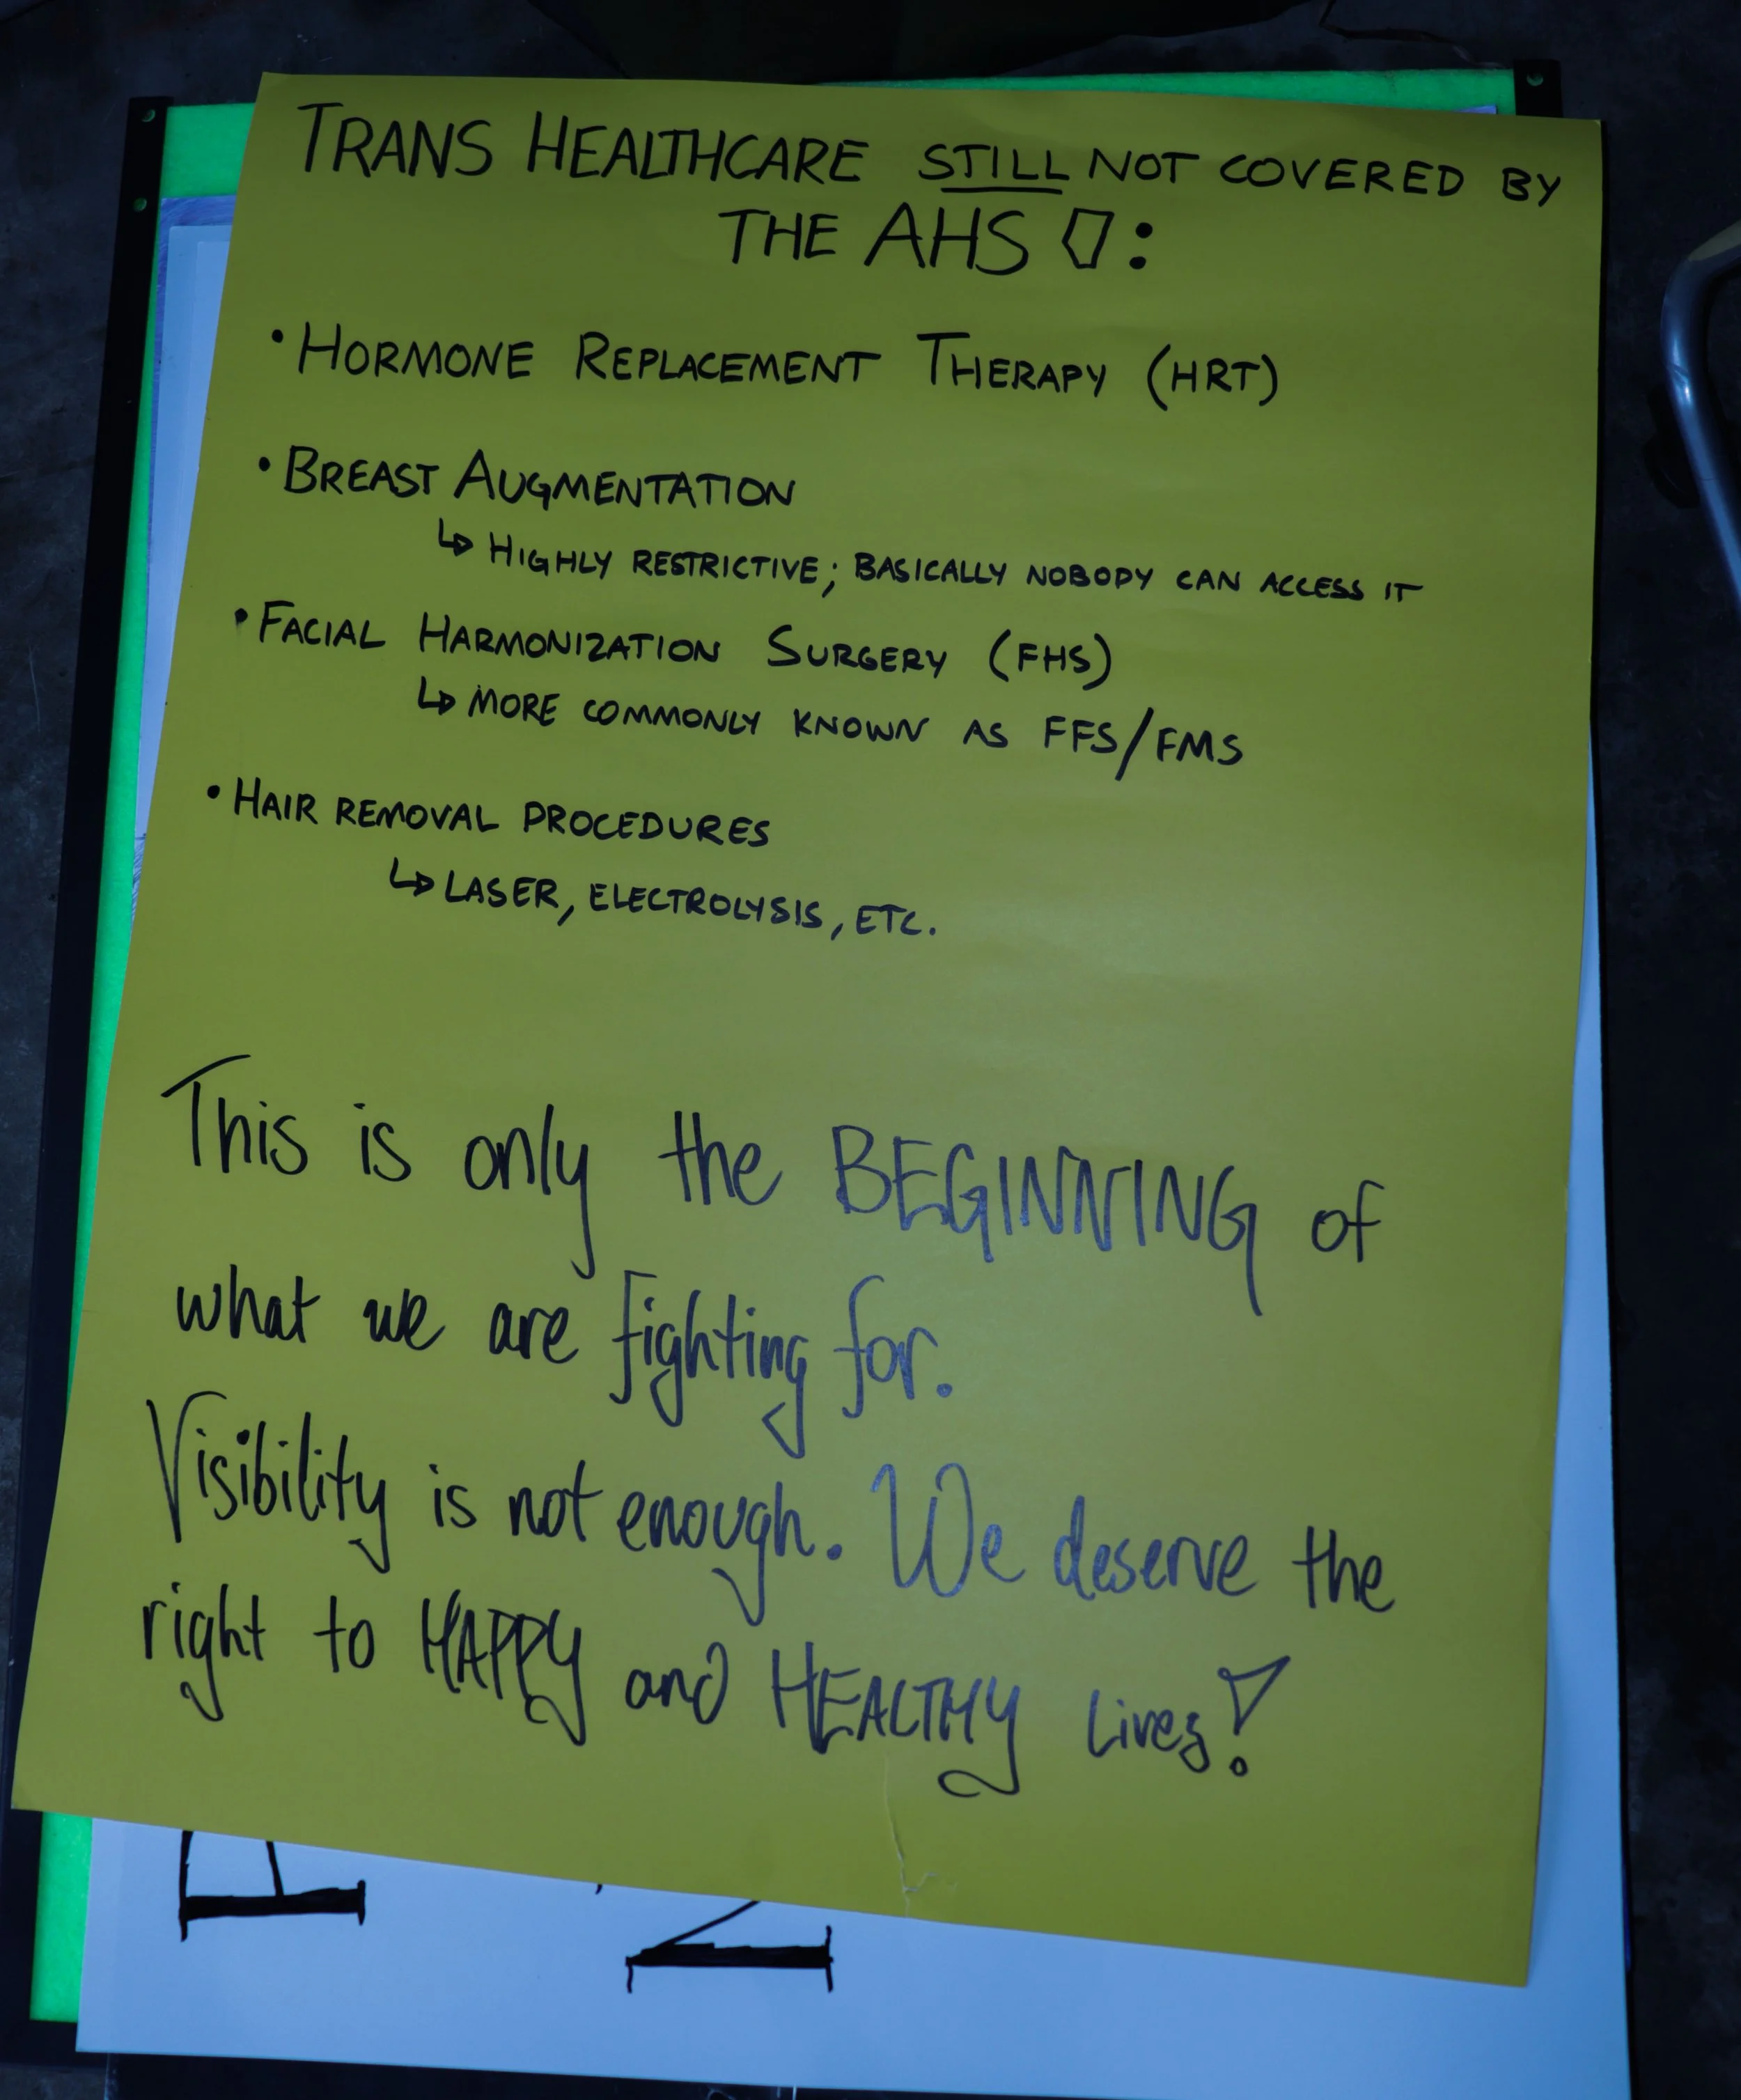 TRANS HEALTHCARE STILL NOT COVERED BY
THE AHS :
• HORMONE REPLACEMENT THERAPY (HRT)
• BREAST AUGMENTATION
↳ HIGHLY RESTRICTIVE; BASICALLY NOBODY CAN ACCESS IT
• FACIAL HARMONIZATION SURGERY (FHS)
↳ MORE COMMONLY KNOWN AS FFS/FMS
• HAIR REMOVAL PROCEDURES
↳ LASER, ELECTROLYSIS, ETC.
This is only the BEGINNING of
what we are fighting for.
Visibility is not enough. We deserve the
right to HAPPY and HEALTHY Lives!